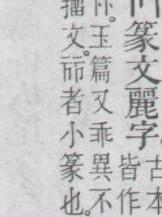 篆文麗字
古本
皆作
玉篇又乖異不
文。丽者小篆也。